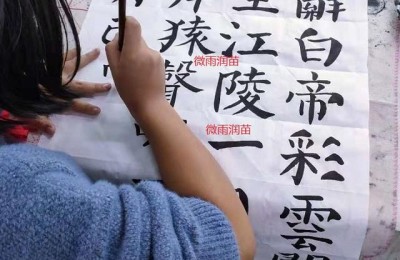 辭白帝彩雲間
里江陵一日
岸猿聲
已
微雨润苗
微雨润苗